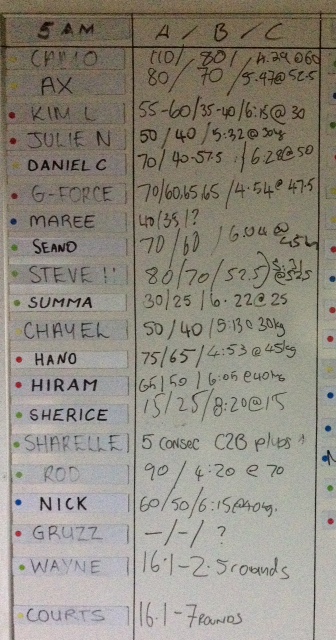 5 AM A / B / C
CAMO 110 / 80 / 4:29 @ 60
AX 80 / 70 / 5.47@52.5
KIM L 55-60/35-40/6:15@ 30
JULIE N 50 / 40 / 5:32@30kg
DANIEL C 70/ 40-57.5 / 6.28@50
G-FORCE 70/60.65.65 /4.54@ 47.5
MAREE 40/35/?
SEANO 70/60 / 6.04 @
STEVE !! 80/70/52.5) @52.5
SUMMA 30/25/6.22@ 25
CHAYEL 50/40/5:13@ 30kg
HANO 75/65/4:53@45kg
HIRAM 65/50/6:05@40kg
SHERICE 15/25/8:20@15
SHARELLE 5 CONSEC C2B
ROD 90 / 4:20 @ 70
NICK 60/50/6:15@40kg.
GRUZZ -/-/ ?
WAYNE 16.1-2.5 rounds
COURTS 16.1-7 ROUNDS